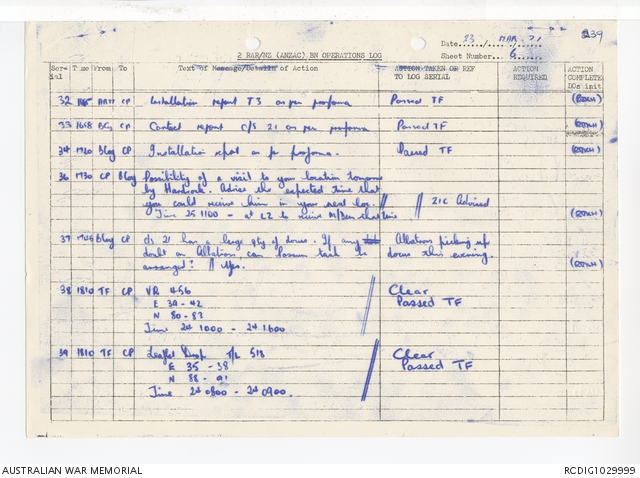 239
2 RAR/NZ (ANZAC) BN OPERATIONS LOG
Date 23 / MAR / 71
Sheet Number 6
Ser-ial Time From To Text of Message/Details of Action ACTION TAKEN OR REF TO LOG SERIAL ACTION REQUIRED ACTION COMPLETE DOs init
32 CP Installation report T3 as per proforma Passed TF
33 1658 CP Contact report C/S 21 as per proforma Passed TF
34 1720 CP Installation as per proforma. Passed TF
36 1730 CP Possibility of a visit to your location tomorrow
by Advise the expected time that
you could receive him in your next log. // // 2IC Advised
Time 25 1100 - at LZ to receive
37 CP C/S 21 has a large qty of docus. If any Albatross picking up
doubt on Albatross, can Possum task be docus this evening.
arranged? // Yes.
38 1810 TF CP VR 456 Clear
E 39 - 42 Passed TF
N 80 - 83
Time 24 1000 - 24 1600
39 1810 TF CP Leaflet Drop 518 Clear
E 35 - 38 Passed TF
N 88 - 91
Time 24 0800 - 24 0900.
AUSTRALIAN WAR MEMORIAL
RCDIG1029999